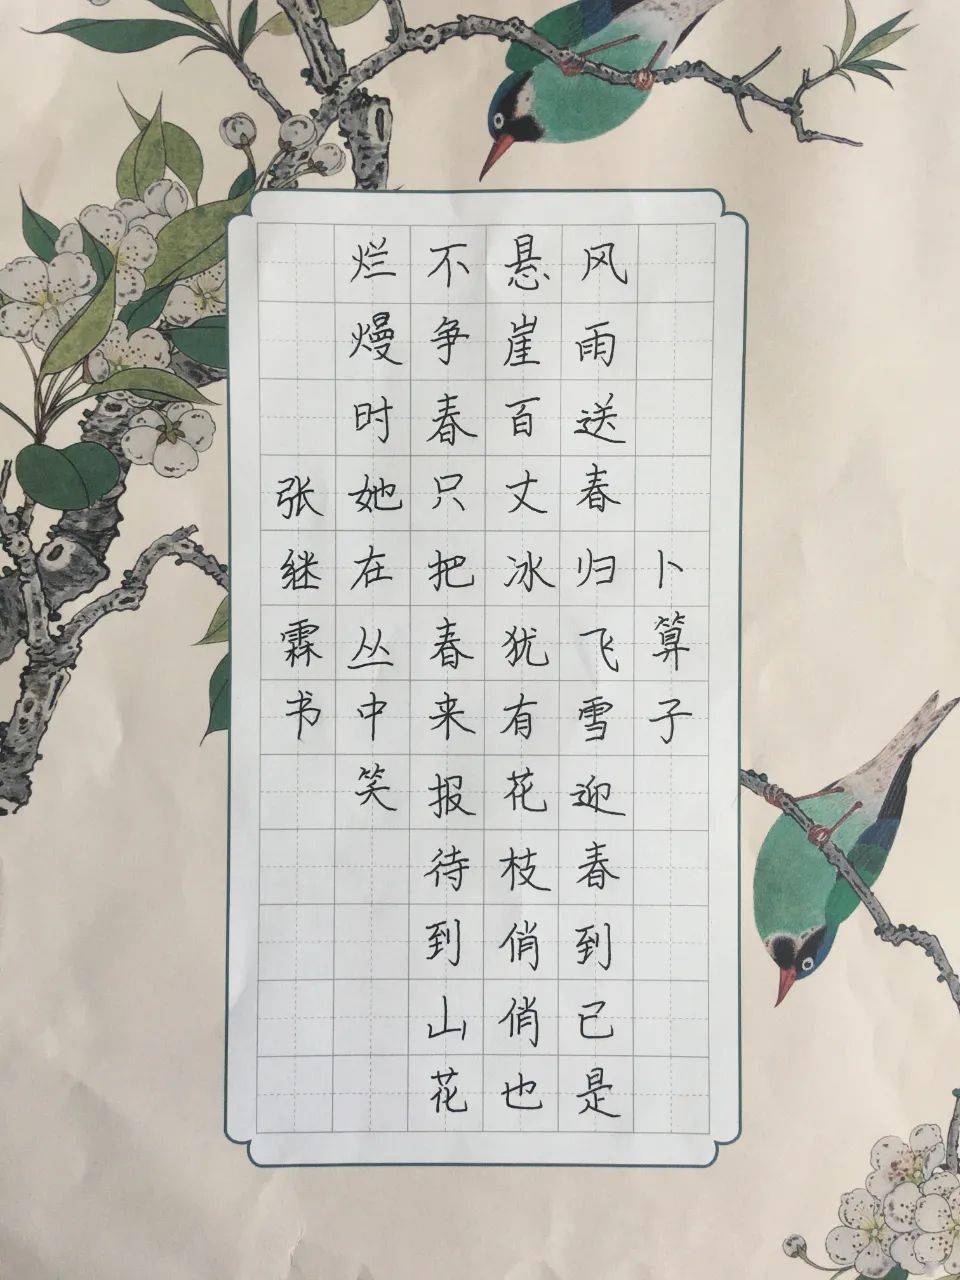 卜算子
风雨送春归飞雪迎春到已是
悬崖百丈冰犹有花枝俏俏也
不争春只把春来报待到山花
烂熳时她在丛中笑
张继霖书